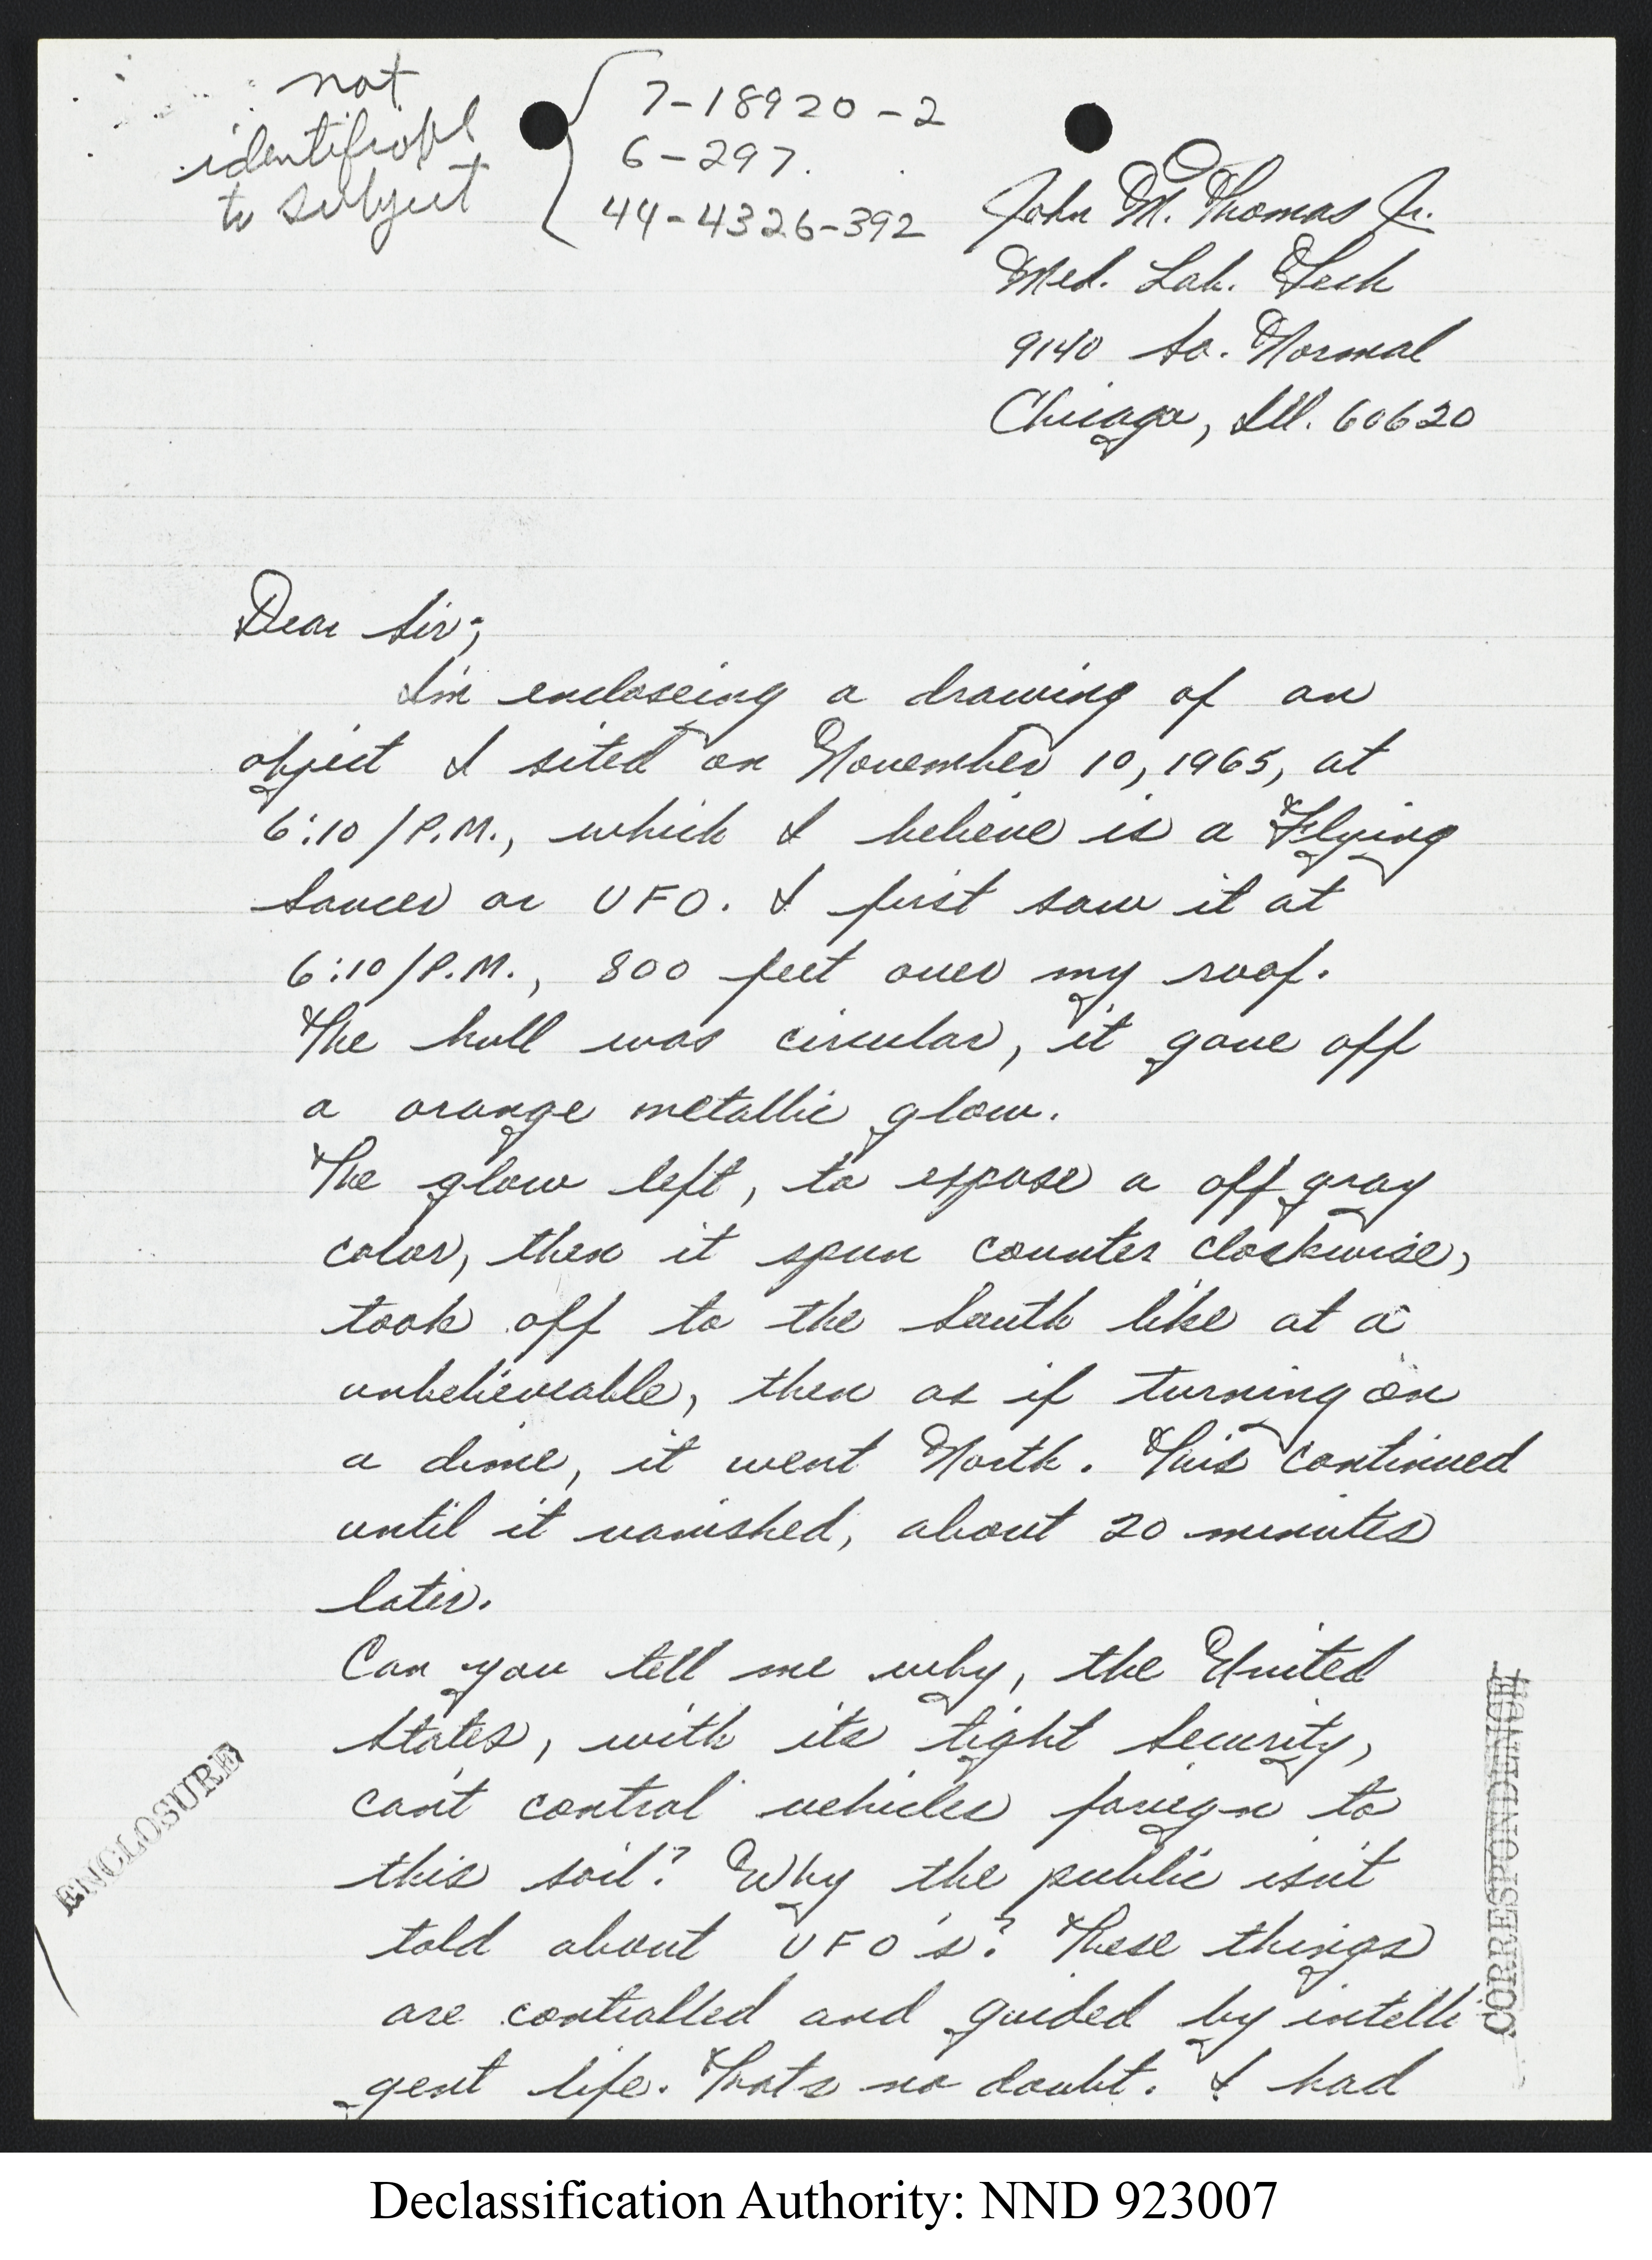 not
identifiable
to subject
7-18920-2
6-297.
44-4326-392
John M. Thomas Jr.
Med. Lab. Tech
9140 So. Normal
Chicago, Ill. 60620
Dear Sir;
I'm encloseing a drawing of an
object I sited on November 10, 1965, at
6:10/P.M., which I believe is a Flying
Saucer or UFO. I first saw it at
6:10/P.M., 800 feet over my roof.
The hull was circular, it gave off
a orange metallic glow.
The glow left, to expose a off gray
color, then it spun counter clockwise,
took off to the South like at a
unbelieveable, then as if turning on
a dime, it went North. This continued
until it vanished, about 20 minutes
later.
Can you tell me why, the United
States, with its tight Security,
can't control vehicles foriegn to
this soil? Why the public isn't
told about UFO's? These things
are controlled and guided by intelli
gent life. Thats no doubt. I had
ENCLOSURE
CORRESPONDENCE
Declassification Authority: NND 923007